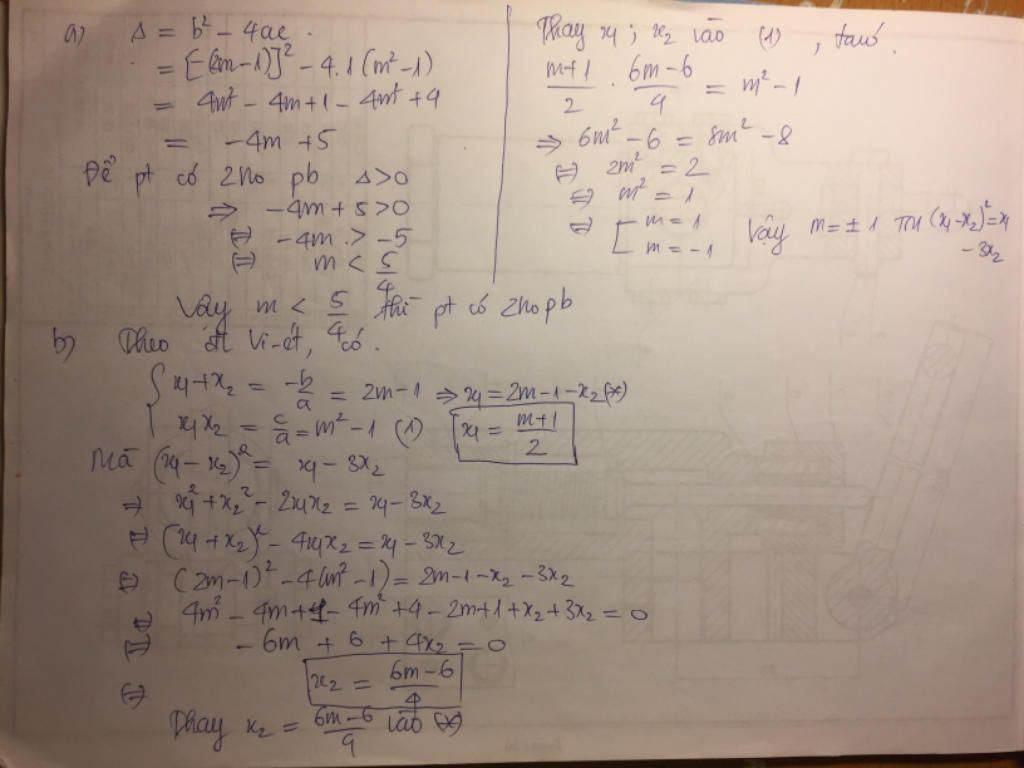 a) Δ = b² - 4ac.
= [-(2m-1)]² - 4.1(m²-1)
= 4m² - 4m+1 - 4m² +4
= -4m +5
Để pt có 2no pb Δ>0
=> -4m+5>0
(=) -4m > -5
(=) m < 5/4
Vậy m < 5/4 thì pt có 2no pb
b) Theo đl Vi-ét, có.
{ x₁+x₂ = -b/a = 2m-1 => x₁=2m-1-x₂(*)
x₁x₂ = c/a = m²-1 (1) x₁ = m+1/2
Mà (x₁-x₂)² = x₁-3x₂
=> x₁²+x₂²-2x₁x₂ = x₁-3x₂
(=) (x₁+x₂)² - 4x₁x₂ = x₁-3x₂
(=) (2m-1)² -4(m²-1) = 2m-1-x₂-3x₂
(=) 4m² - 4m+1 - 4m² +4 - 2m+1+x₂+3x₂ = 0
(=) -6m + 6 + 4x₂ = 0
(=) x₂ = 6m-6/4
Thay x₂ = 6m-6/4 vào (*)
Thay x₁; x₂ vào (1), ta có.
m+1/2 . 6m-6/4 = m²-1
=> 6m²-6 = 8m²-8
(=) 2m² = 2
(=) m² = 1
(=) [ m = 1
m = -1
Vậy m=±1 TM (x₁-x₂)²=x₁
-3x₂